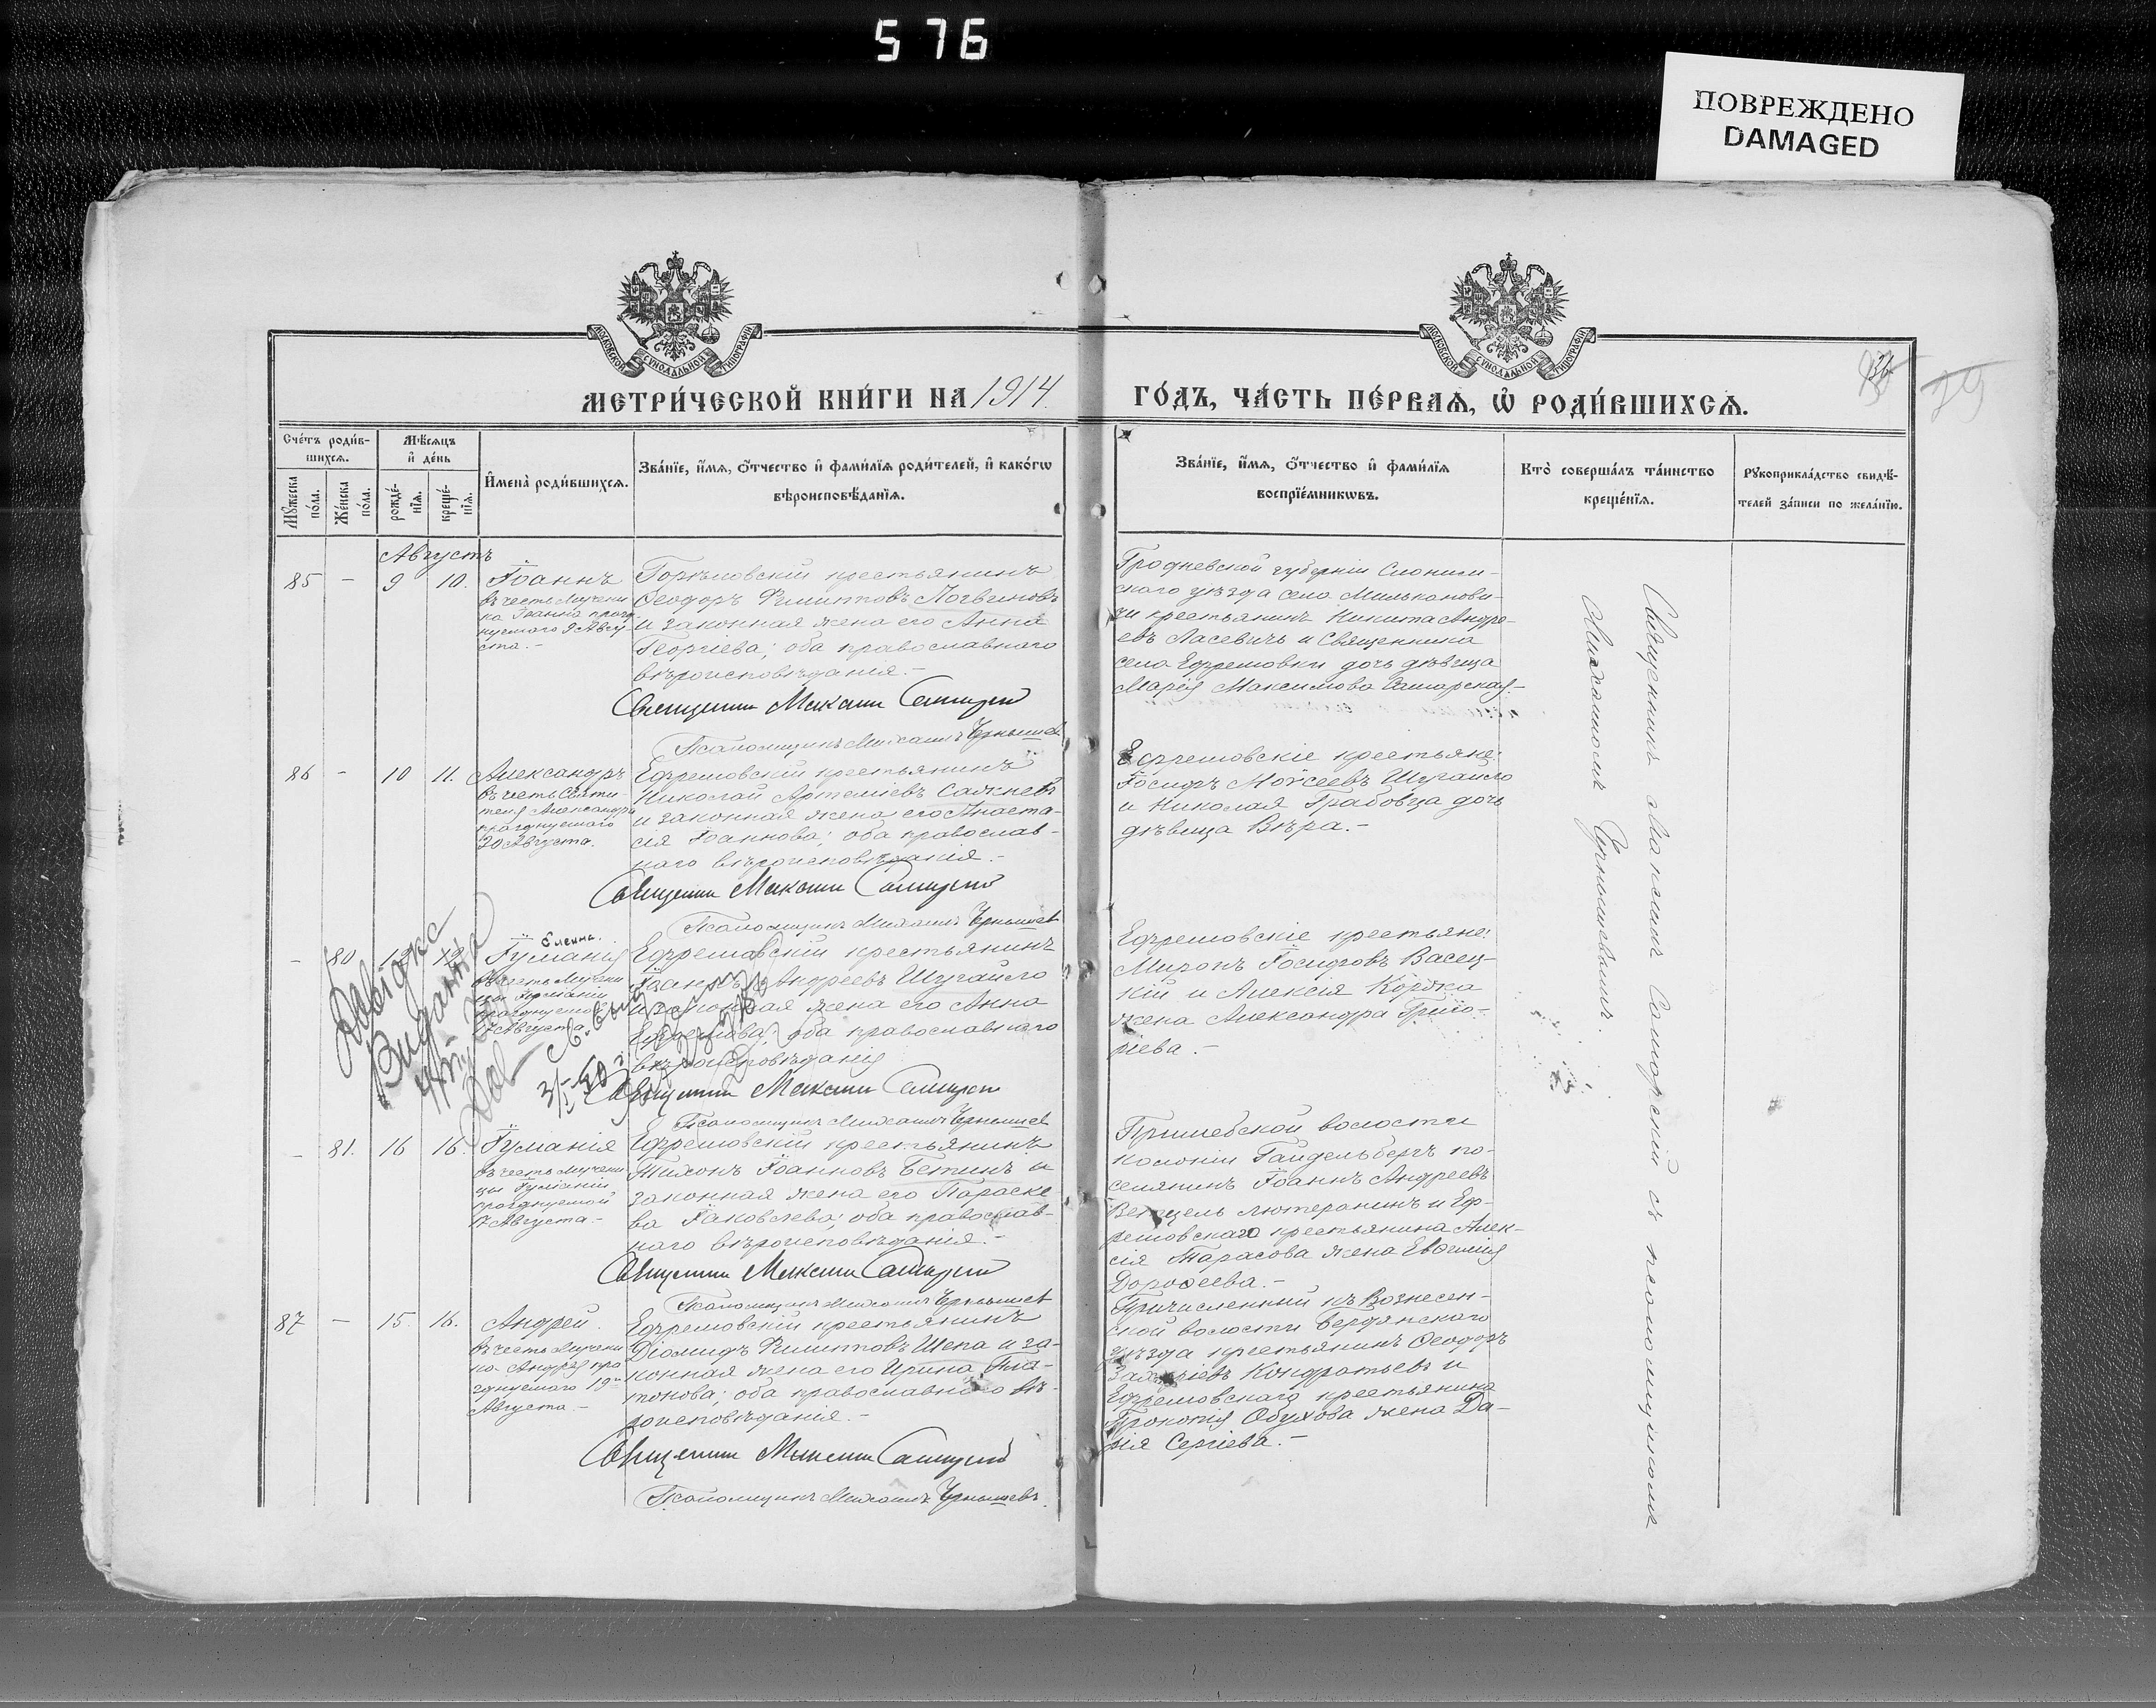 576
ПОВРЕЖДЕНО
DAMAGED
МОСКОВСКОЙ СѴНОДАЛЬНОЙ ТИПОГРАФІИ
МОСКОВСКОЙ СѴНОДАЛЬНОЙ ТИПОГРАФІИ
МЕТРИ́ЧЕСКОЙ КНИ́ГИ НА 1914.
ГО́ДЪ, ЧА́СТЬ ПЕ́РВАѦ, Ѡ҆ РОДИ́ВШИХСѦ.
29
Сче́тъ роди́в-
шихсѧ.
Мꙋ́жеска
по́ла.
Же́нска
по́ла.
Мѣ́сѧцъ
и҆ де́нь
рожде́-
нїѧ.
креще́-
нїѧ.
И҆мена̀ роди́вшихсѧ.
Зва́нїе, и҆́мѧ, ѻ҆́тчество и҆ фами́лїѧ роди́телей, и҆ како́гѡ
вѣроисповѣ́данїѧ.
Зва́нїе, и҆́мѧ, ѻ҆́тчество и҆ фами́лїѧ
воспрїе́мникѡвъ.
Кто̀ соверша́лъ та́инство
креще́нїѧ.
Рꙋкоприкла́дство свидѣ́-
телей за́писи по жела́нїю.
Августъ
85 – 9 10. Іоаннъ
въ честь Мучени
ка Іоанна празд
нуемаго 9 Авгу
ста. –
Горѣловскій крестьянинъ
Ѳеодоръ Филипповъ Логвиновъ
и законная жена его Анна
Георгіева; оба православнаго
вѣроисповѣданія. –
Священникъ Максимъ Самарскій
Псаломщикъ Михаилъ Чернышевъ
Гродневской губерніи Слоним-
скаго уѣзда села Мильканови-
чи крестьянинъ Никита Андре-
евъ Ласевичъ и Священника
села Ефремовки дочь дѣвица
Марія Максимова Самарская. –
86 – 10 11. Александръ
въ честь Святи-
теля Александра
празднуемаго
30 Августа.
Ефремовскій крестьянинъ
Николай Артеміевъ Сажневъ
и законная жена его Анаста-
сія Іоаннова; оба православ-
наго вѣроисповѣданія. –
Священникъ Максимъ Самарскій
Псаломщикъ Михаилъ Чернышевъ
Ефремовскіе крестьяне:
Іосифъ Моѵсеевъ Шугайло
и Николая Грабовца дочь
дѣвица Вѣра. –
– 80 12 12 Іуліанія
въ честь Мучени
цы Іуліаніи
празднуемой
17 Августа
Ефремовскій крестьянинъ
Іоаннъ Андреевъ Шугайло
и законная жена его Анна
Ефремова; оба православнаго
вѣроисповѣданія
Священникъ Максимъ Самарскій
Псаломщикъ Михаилъ Чернышевъ
Ефремовскіе крестьяне:
Миронъ Іосифовъ Васец-
кій и Алексія Коржа
жена Александра Григо-
ріева. –
– 81. 16 16. Іуліанія
въ честь Мучени
цы Іуліаніи
празднуемой
17 Августа –
Ефремовскій крестьянинъ
Тихонъ Іоанновъ Бетинъ и
законная жена его Параске
ва Іаковлева; оба православ-
наго вѣроисповѣданія. –
Священникъ Максимъ Самарскій
Псаломщикъ Михаилъ Чернышевъ
Пришебской волости
колоніи Гайдельбергъ по-
селянинъ Іоаннъ Андреевъ
Ветцель лютеранинъ и Еф-
ремовскаго крестьянина Алек-
сія Тарасова жена Евѳимія
Дороѳеева. –
87 – 15. 16. Андрей.
въ честь Мучени
ка Андрея пра
зднуемаго 19го
Августа. –
Ефремовскій крестьянинъ
Діомидъ Филипповъ Шепа и за-
конная жена его Ирина Пла-
тонова; оба православнаго вѣ-
роисповѣданія. –
Священникъ Максимъ Самарскій
Псаломщикъ Михаилъ Чернышевъ.
Причисленный къ Вознесен-
ской волости Бердянскаго
уѣзда крестьянинъ Ѳеодоръ
Захаріевъ Кондратьевъ и
Ефремовскаго крестьянина
Прокопія Обухова жена Да-
рія Сергіева. –
Священникъ Максимъ Самарскій съ псаломщикомъ
Михаиломъ Чернышевымъ.